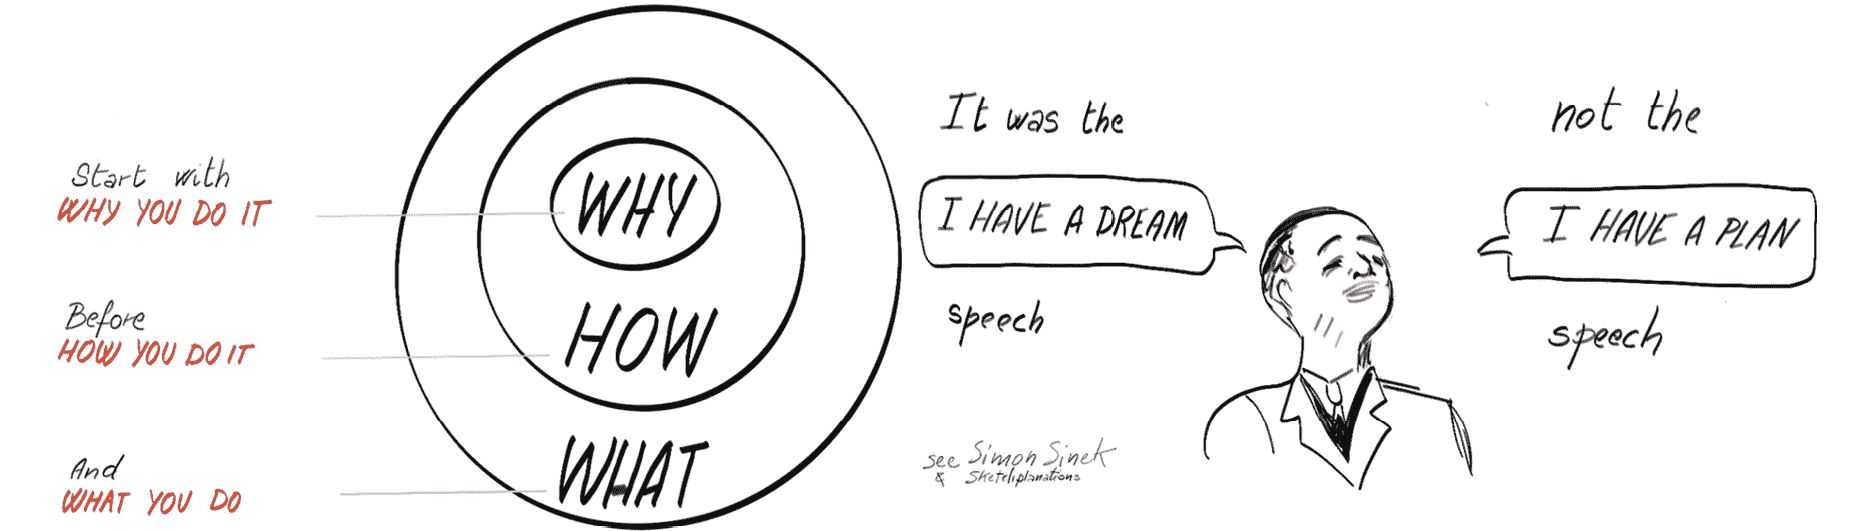 Start with
WHY YOU DO IT
Before
HOW YOU DO IT
And
WHAT YOU DO
WHY
HOW
WHAT
It was the
I HAVE A DREAM
speech
not the
I HAVE A PLAN
speech
see Simon Sinek
& Sketchplanations